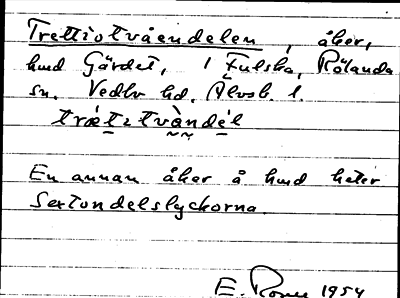 Trettiotvåendelen, åker,
hmd Gärdet, 1 Fulska, Rölanda
sn. Vedbo hd. Älvsb. l.
trætıtvàndél
En annan åker å hmd heter
Sextondelslyckorna.
E. 1954